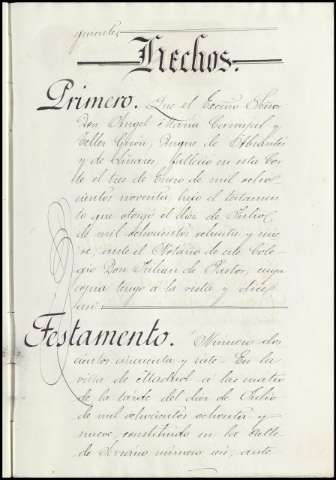 Hechos.
Primero. Que el Excmo Señor
Don Angel Maria Carvajal y
Tellez Giron, Duque de Abrantes
y de Linares, falleció en esta Cor-
te el tres de Enero de mil ocho-
cientos noventa, bajo el testamen-
to que otorgó el dia de Julio
de mil ochocientos ochenta y nue-
ve, ante el Notario de este Cole-
gio Don Julian de Pastor, cuya
copia tengo á la vista y dice
así
Testamento. Número dos
cientos cincuenta y siete = En la
villa de Madrid á las cuatro
de la tarde del dia de Julio
de mil ochocientos ochenta y
nueve, constituido en la calle
de número ante